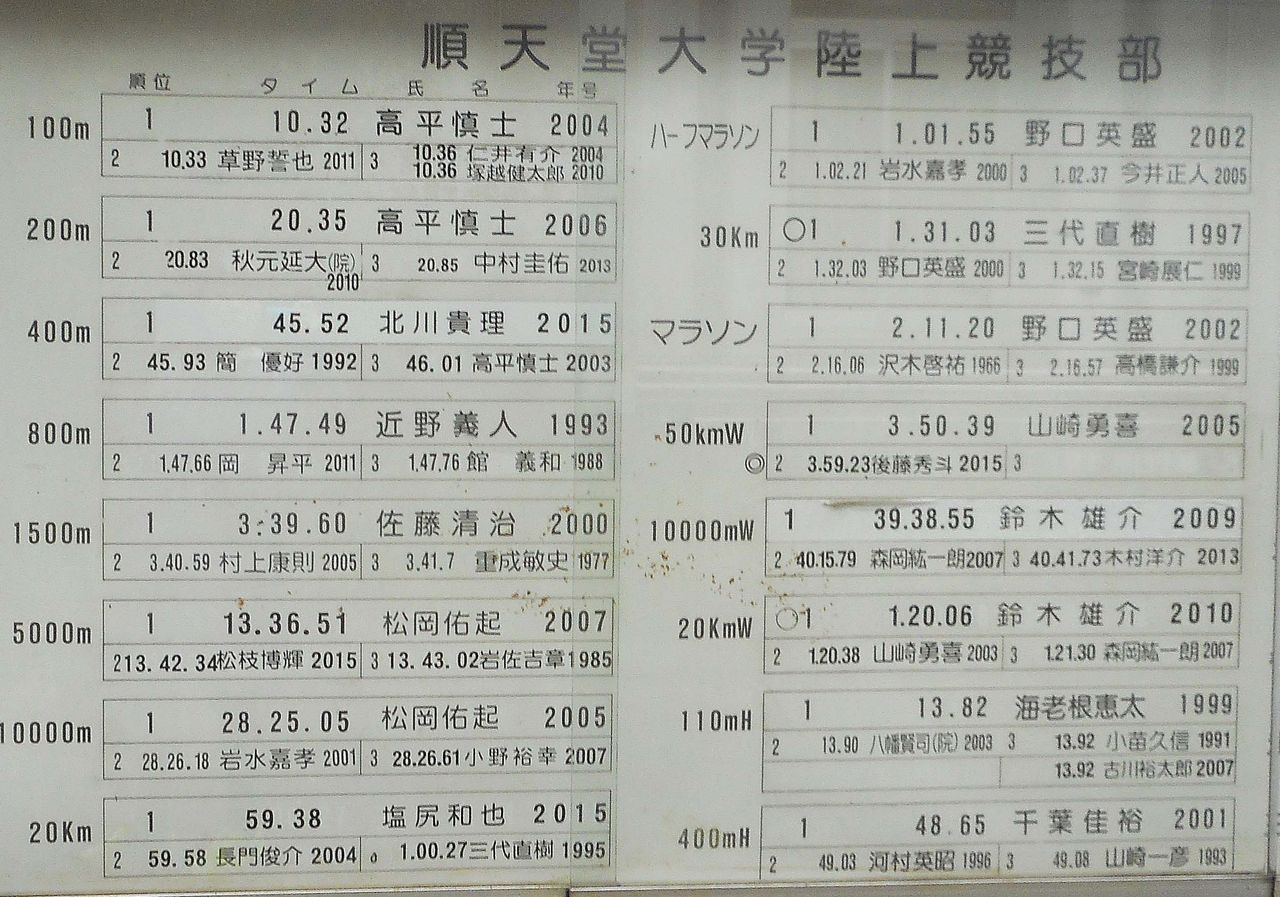 順天堂大学陸上競技部
順位 タイム 氏名 年号
100m 1 10.32 高平慎士 2004
2 10.33 草野誓也 2011 3 10.36 仁井有介 2004
10.36 塚越健太郎 2010
200m 1 20.35 高平慎士 2006
2 20.83 秋元延大(院) 3 20.85 中村圭佑 2013
2010
400m 1 45.52 北川貴理 2015
2 45.93 簡 優好 1992 3 46.01 高平慎士 2003
800m 1 1.47.49 近野義人 1993
2 1.47.66 岡 昇平 2011 3 1.47.76 館 義和 1988
1500m 1 3:39.60 佐藤清治 2000
2 3.40.59 村上康則 2005 3 3.41.7 重成敏史 1977
5000m 1 13.36.51 松岡佑起 2007
2 13.42.34 松枝博輝 2015 3 13.43.02 岩佐吉章 1985
10000m 1 28.25.05 松岡佑起 2005
2 28.26.18 岩水嘉孝 2001 3 28.26.61 小野裕幸 2007
20Km 1 59.38 塩尻和也 2015
2 59.58 長門俊介 2004 1.00.27 三代直樹 1995
ハーフマラソン 1 1.01.55 野口英盛 2002
2 1.02.21 岩水嘉孝 2000 3 1.02.37 今井正人 2005
30Km ○1 1.31.03 三代直樹 1997
2 1.32.03 野口英盛 2000 3 1.32.15 宮崎展仁 1999
マラソン 1 2.11.20 野口英盛 2002
2 2.16.06 沢木啓祐 1966 3 2.16.57 高橋謙介 1999
50kmW 1 3.50.39 山崎勇喜 2005
◎ 2 3.59.23 後藤秀斗 2015 3
10000mW 1 39.38.55 鈴木雄介 2009
2 40.15.79 森岡紘一朗 2007 3 40.41.73 木村洋介 2013
20KmW ○1 1.20.06 鈴木雄介 2010
2 1.20.38 山崎勇喜 2003 3 1.21.30 森岡紘一朗 2007
110mH 1 13.82 海老根恵太 1999
2 13.90 八幡賢司(院) 2003 3 13.92 小苗久信 1991
13.92 古川裕太郎 2007
400mH 1 48.65 千葉佳裕 2001
2 49.03 河村英昭 1996 3 49.08 山崎一彦 1993